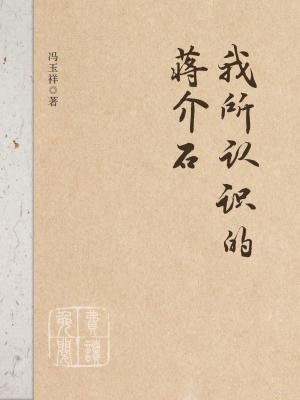 我所认识的
蒋介石
冯玉祥◎著